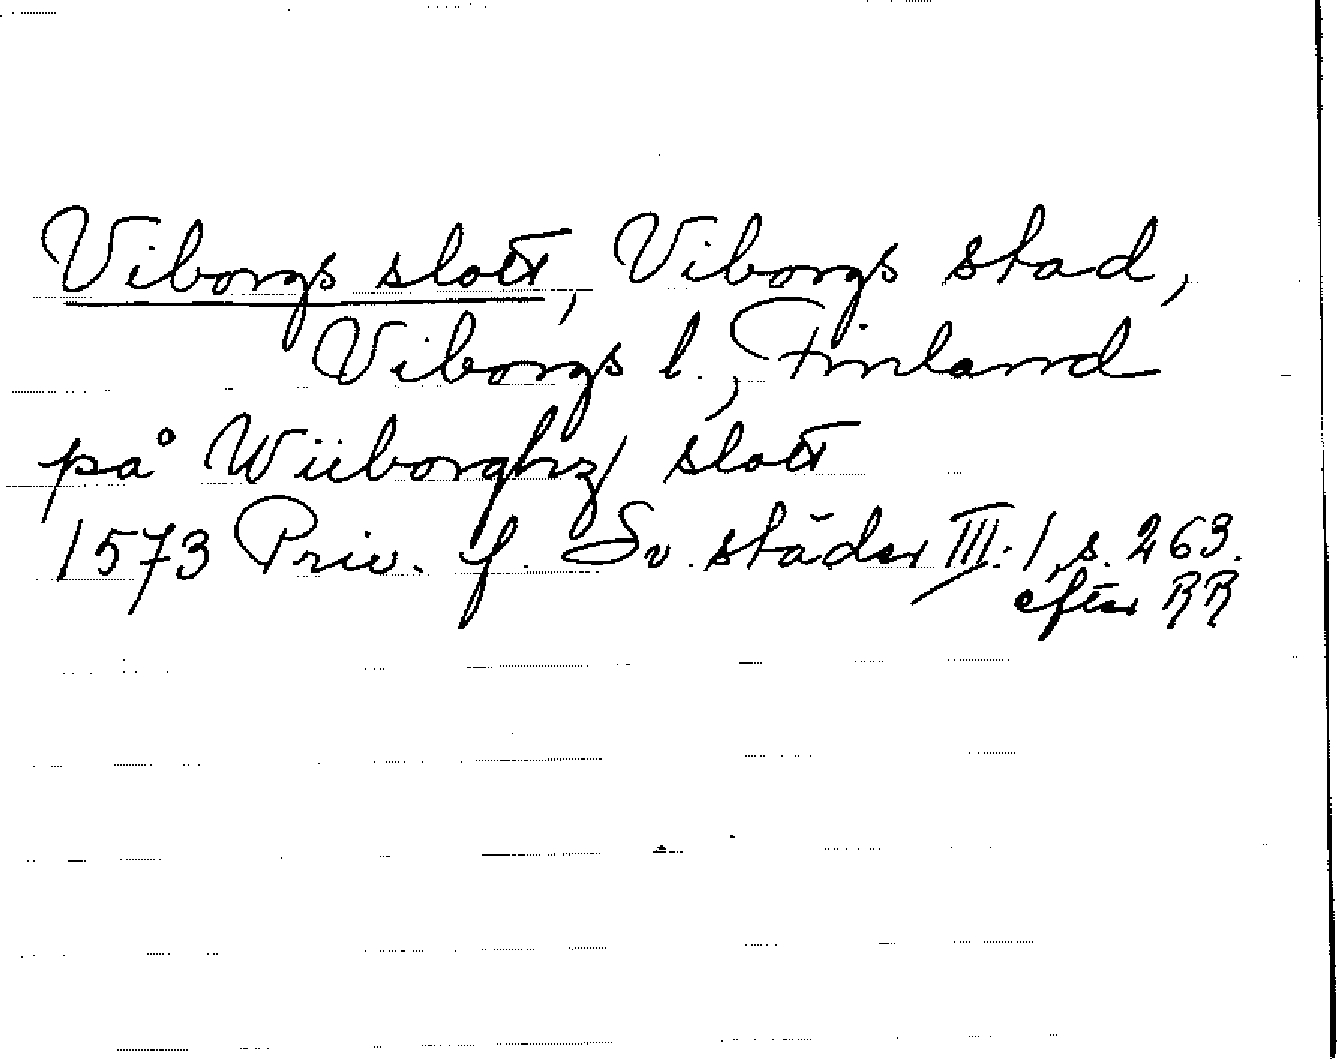 Viborgs slott, Viborgs stad,
Viborgs l., Finland
på Wiiborghz slott
1573 Priv. f. Sv. städer III:1, s. 263.
efter RR